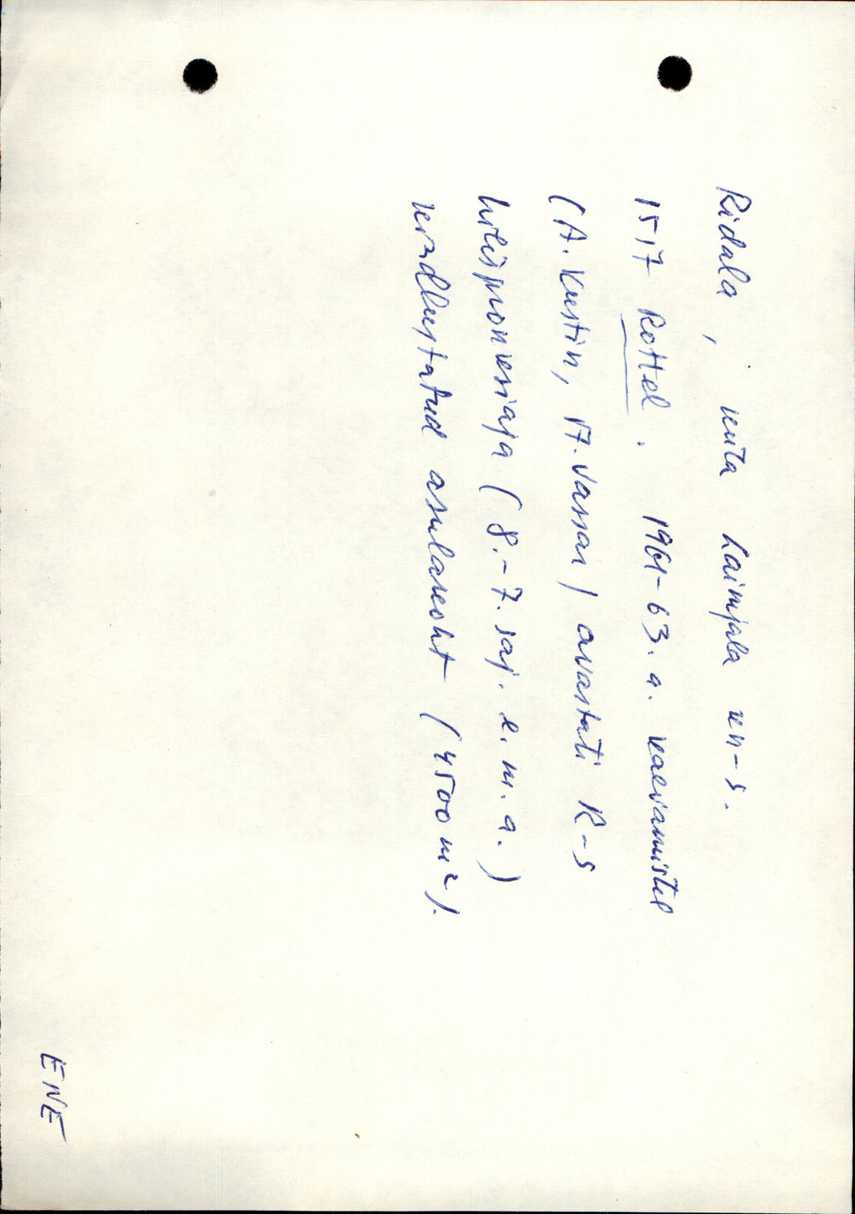 Ridala, küla Laimjala kn-s.
1517 Rottel. 1961-63. a. kaevamistel
(A. Kustin, A. Vassar) avastati R-s
hilispronksiaja (8.-7. saj. e. m. a.)
kindlustatud asulakoht (4500 m²).
ENE